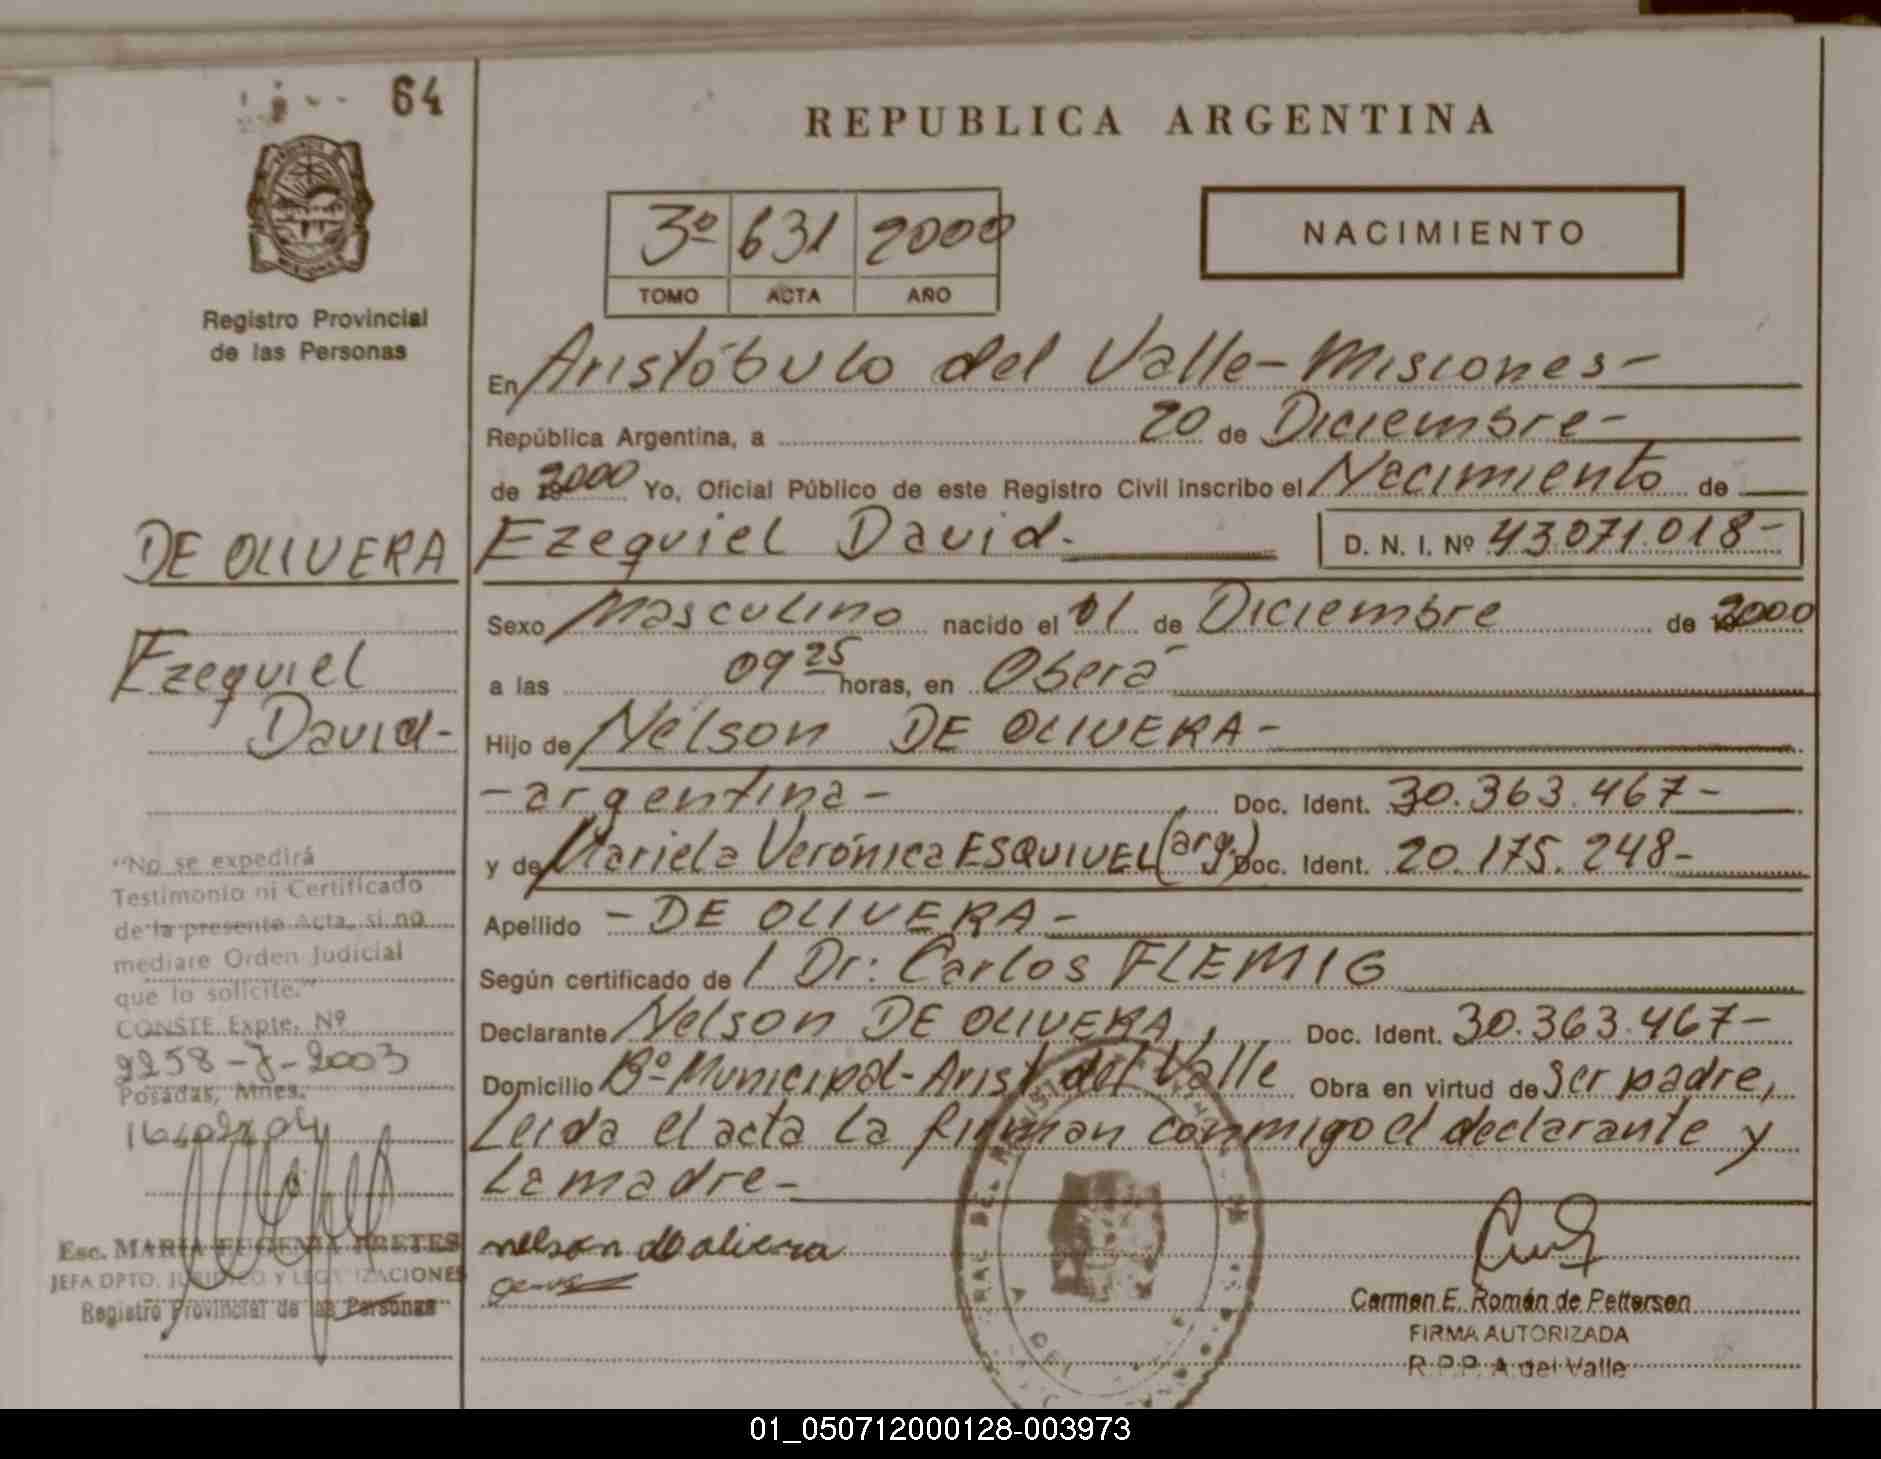 64
REPUBLICA ARGENTINA
NACIMIENTO
3º 631 2000
TOMO ACTA AÑO
Registro Provincial
de las Personas
En Aristóbulo del Valle - Misiones -
República Argentina, a 20 de Diciembre -
de 2000 Yo, Oficial Público de este Registro Civil inscribo el Nacimiento de
DE OLIVERA
Ezequiel
David -
Ezequiel David. D. N. I. Nº 43.071.018 -
Sexo Masculino nacido el 01 de Diciembre de 2000
a las 09 25 horas, en Oberá
Hijo de Nelson DE OLIVERA -
- argentina - Doc. Ident. 30.363.467 -
y de Mariela Verónica ESQUIVEL (arg.) Doc. Ident. 20.175.248 -
Apellido - DE OLIVERA -
Según certificado de / Dr: Carlos FLEMIG
Declarante Nelson DE OLIVERA, Doc. Ident. 30.363.467 -
Domicilio Bº Municipal - Arist. del Valle Obra en virtud de ser padre,
Leida el acta la firman conmigo el declarante y
La madre -
"No se expedirá
Testimonio ni Certificado
de la presente Acta, si no
mediare Orden Judicial
que lo solicite."
CONSTE Expte. Nº
9258-J-2003
Posadas, Mnes.
Esc. MARIA EUGENIA BRETES
JEFA DPTO. JURIDICO Y LEGALIZACIONES
Registro Provincial de las Personas
nelson de olivera
Carmen E. Román de Pettersen
FIRMA AUTORIZADA
R.P.P. A. del Valle
01_050712000128-003973